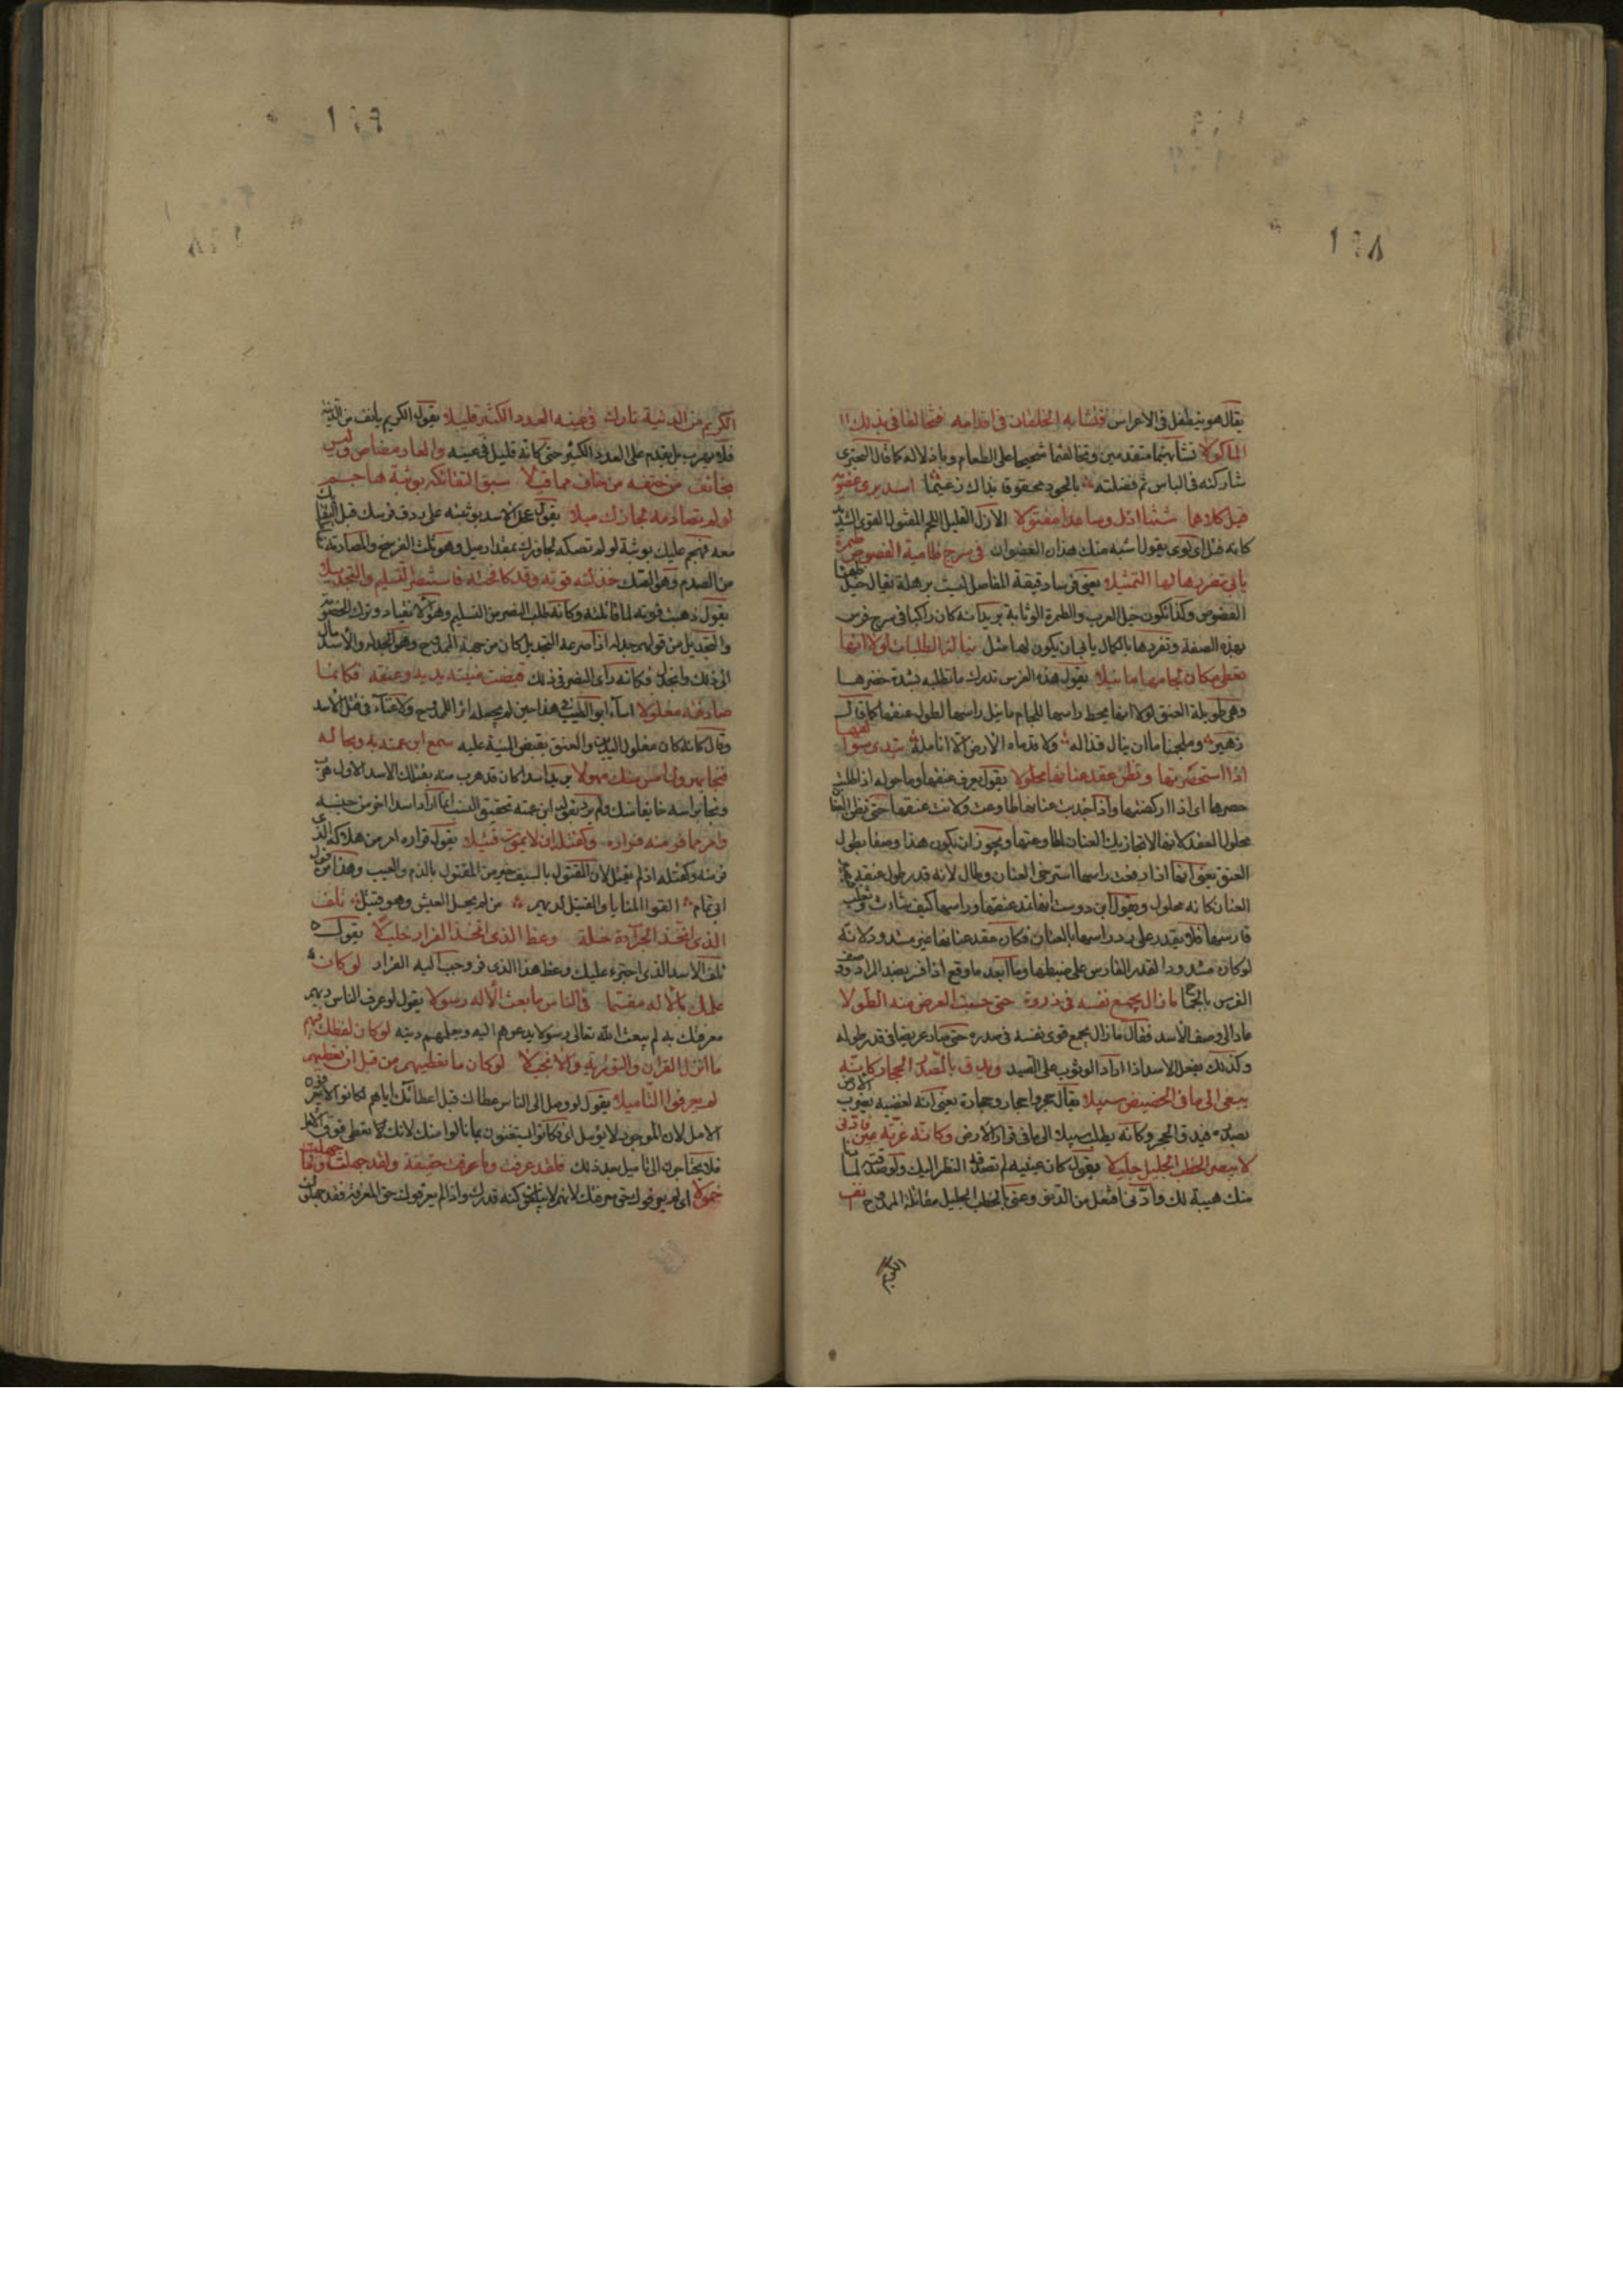 ١٢٨
يقال هو يتطفل فى الاعراس فتشابه الخلقان فى اقدامه وتخالفا فى بذلك
الماكولا تشابهتما متقدمين وتخالفتما شحيحا على الطعام وباذلا له كما قال البحترى
شاركته فى الباس ثم فضلته بالجود محقوقا بذاك زعيما اسد يرى عضويه
فيك كلاهما متنا ازل وساعدا مفتولا الازل القليل اللحم المفتول القوى الشديد
كانه فتل اى لوى يقول اشبه منك هذان العضوان فى سرج ظامية الفصوص طمرة
يابى تفردها لها التمثيلا يعنى فرسا دقيقة المفاصل ليست برهلة يقال خيل ظماء
الفصوص وكذا تكون خيل العرب والطمرة الوثابة يريد انه كان راكبا فى سرج فرس
بهذه الصفة وتفردها بالكمال يابى ان يكون لها مثل نيالة الطلبات لولا انها
تعطى مكان لجامها ما نيلا يقول هذه الفرس تدرك ما تطلبه بشدة حضرها
وهى طويلة العنق لولا انها تحط راسها للجام ما نيل راسها لطول عنقها كما قال
زهير وملجمنا ما ان ينال قذاله ولا قدماه الارض الا انامله تندى سوالفها
اذا استحضرتها وتظن عقد عنانها محلولا يقول يعرق عنقها وما حوله اذا طلبت
حضرها اى اذا اركضتها واذا جذبت عنانها طاوعت ولانت عنقها حتى تظن العنان
محلول العقد لانها لا تجاذبك العنان لمطاوعتها ويجوز ان يكون هذا وصفا بطول
العنق يعنى انها اذا رفعت راسها استرخى العنان وطال لانه قدر طول عنقه
العنان كانه محلول ويقول ابن دوست انها تمد عنقها وراسها كيف شاءت وتغلب
فارسها فلا يقدر على رد راسها بالعنان فكان عقد عنانها غير مشدود لانه
لو كان مشدودا لقدر الفارس على ضبطها وما ابعد ما وقع اذا فسر بضد المراد ووصف
الفرس بالجماح ما زال يجمع نفسه فى زوره حتى حسبت العرض منه الطولا
عاد الى وصف الاسد فقال ما زال يجمع قوى نفسه فى صدره حتى صار عريضا فى قدر طوله
وكذلك يفعل الاسد اذا اراد الوثوب على الصيد ويدق بالصدر الحجار كانه
يبغى الى ما فى الحضيض سبيلا يقال حجر واحجار وحجارة يعنى انه لغضبه يضرب الارض
بصدره فيدق الحجر وكانه يطلب سبيلا الى ما فى قرار الارض وكانه غرته عين فادنى
لا يبصر الخطب الجليل جليلا يقول كان عينيه لم تصدقه النظر اليك ولو صدقته لما
منك هيبة لك وادنى افتعل من الدنو وعنى بالخطب الجليل مقاتلة الممدوح انف
الكريم
١٢٩
الكريم من الدنية تارك فى عينه العدد الكثير قليلا يقول الكريم يانف من الدنية
فلا يهرب بل يقدم على العدد الكثير حتى كانه قليل فى عينه والعار مضاض وليس
بخائف من حتفه من خاف مما قيلا سبق التقاءكه بوثبة هاجم
لو لم تصادمه لجازك ميلا يقول عجل الاسد بوثبته على ردف فرسك قبل التقائك
معه فهجم عليك بوثبة لو لم تصكه لجاوزك بمقدار ميل وهو ثلث الفرسخ والمصادمة
من الصدم وهو الصك خذلته قوته وقد كافحته فاستنصر التسليم والتجديلا
يقول ذهبت قوته لما قاتلته وكانه طلب النصر من التسليم وهو الانقياد وترك الخصومة
والتجديل من قولهم جدله اذا صرعه التجديل كان من جهة الممدوح وهو انجدل والاسد مال
الى ذلك وانجدل فكانه راى النصر فى ذلك قبضت منيته يديه وعنقه فكانما
صادفته مغلولا اساء ابو الطيب فى هذا حين لم يجعل اثرا للممدوح ولا غناء فى قتل الاسد
وقال كانه كان مغلول اليدين والعنق بقبض المنية عليه سمع ابن عمته به وبحاله
فنجا يهرول امس منك مهولا يريد اسدا كان قد هرب منه بقتلك الاسد الاول هرب
ونجا براسه خائفا منك ولم يرد بقوله ابن عمته تحقيق النسب انما اراد اسدا اخر من جنسه
وامر مما فر منه فراره وكقتله ان لا يموت قتيلا يقول فراره امر من هلاكه الذى
فر منه وكقتله اذ لم يقتل لان المقتول بالسيف خير من المقتول بالذم والعيب وهذا من قول
ابى تمام القوا المنايا والقتيل لديهم من لم يخل العيش وهو قتيل تلف
الذى اتخذ الجراءة خلة وعظ الذى اتخذ الفرار خليلا يقول
تلف الاسد الذى اجترء عليك وعظ هذا الذى فر وحبب اليه الفرار لو كان
علمك بالاله مقسما فى الناس ما بعث الاله رسولا يقول لو عرف الناس ربهم
معرفتك به لم يبعث الله تعالى رسولا يدعوهم اليه ويعلمهم دينه لو كان لفظك فيهم
ما انزل القران والتوراة والانجيلا لو كان ما تعطيهم من قبل ان تعطيهم
لم يعرفوا التاميلا يقول لو وصل الى الناس عطاءك قبل اعطائك اياهم لكانوا لا يعرفون
الامل لان الموجود لا يؤمل اى فكانوا يستغنون بما نالوا منك لانك كنت تعطى فوق الامل
فلا يحتاجون الى تاميل بعد ذلك فلقد عرفت وما عرفت حقيقة ولقد جهلت وما جهلت
خمولا اى لم يعرفوك حق معرفتك لانهم لا يبلغون كنه قدرك واذا لم يعرفوك حق المعرفة فقد جهلوك